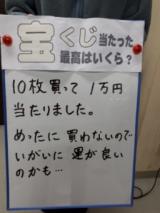 宝くじ当たった
最高はいくら？
10枚買って1万円
当たりました。
めったに買わないので
いがいに運が良い
のかも…